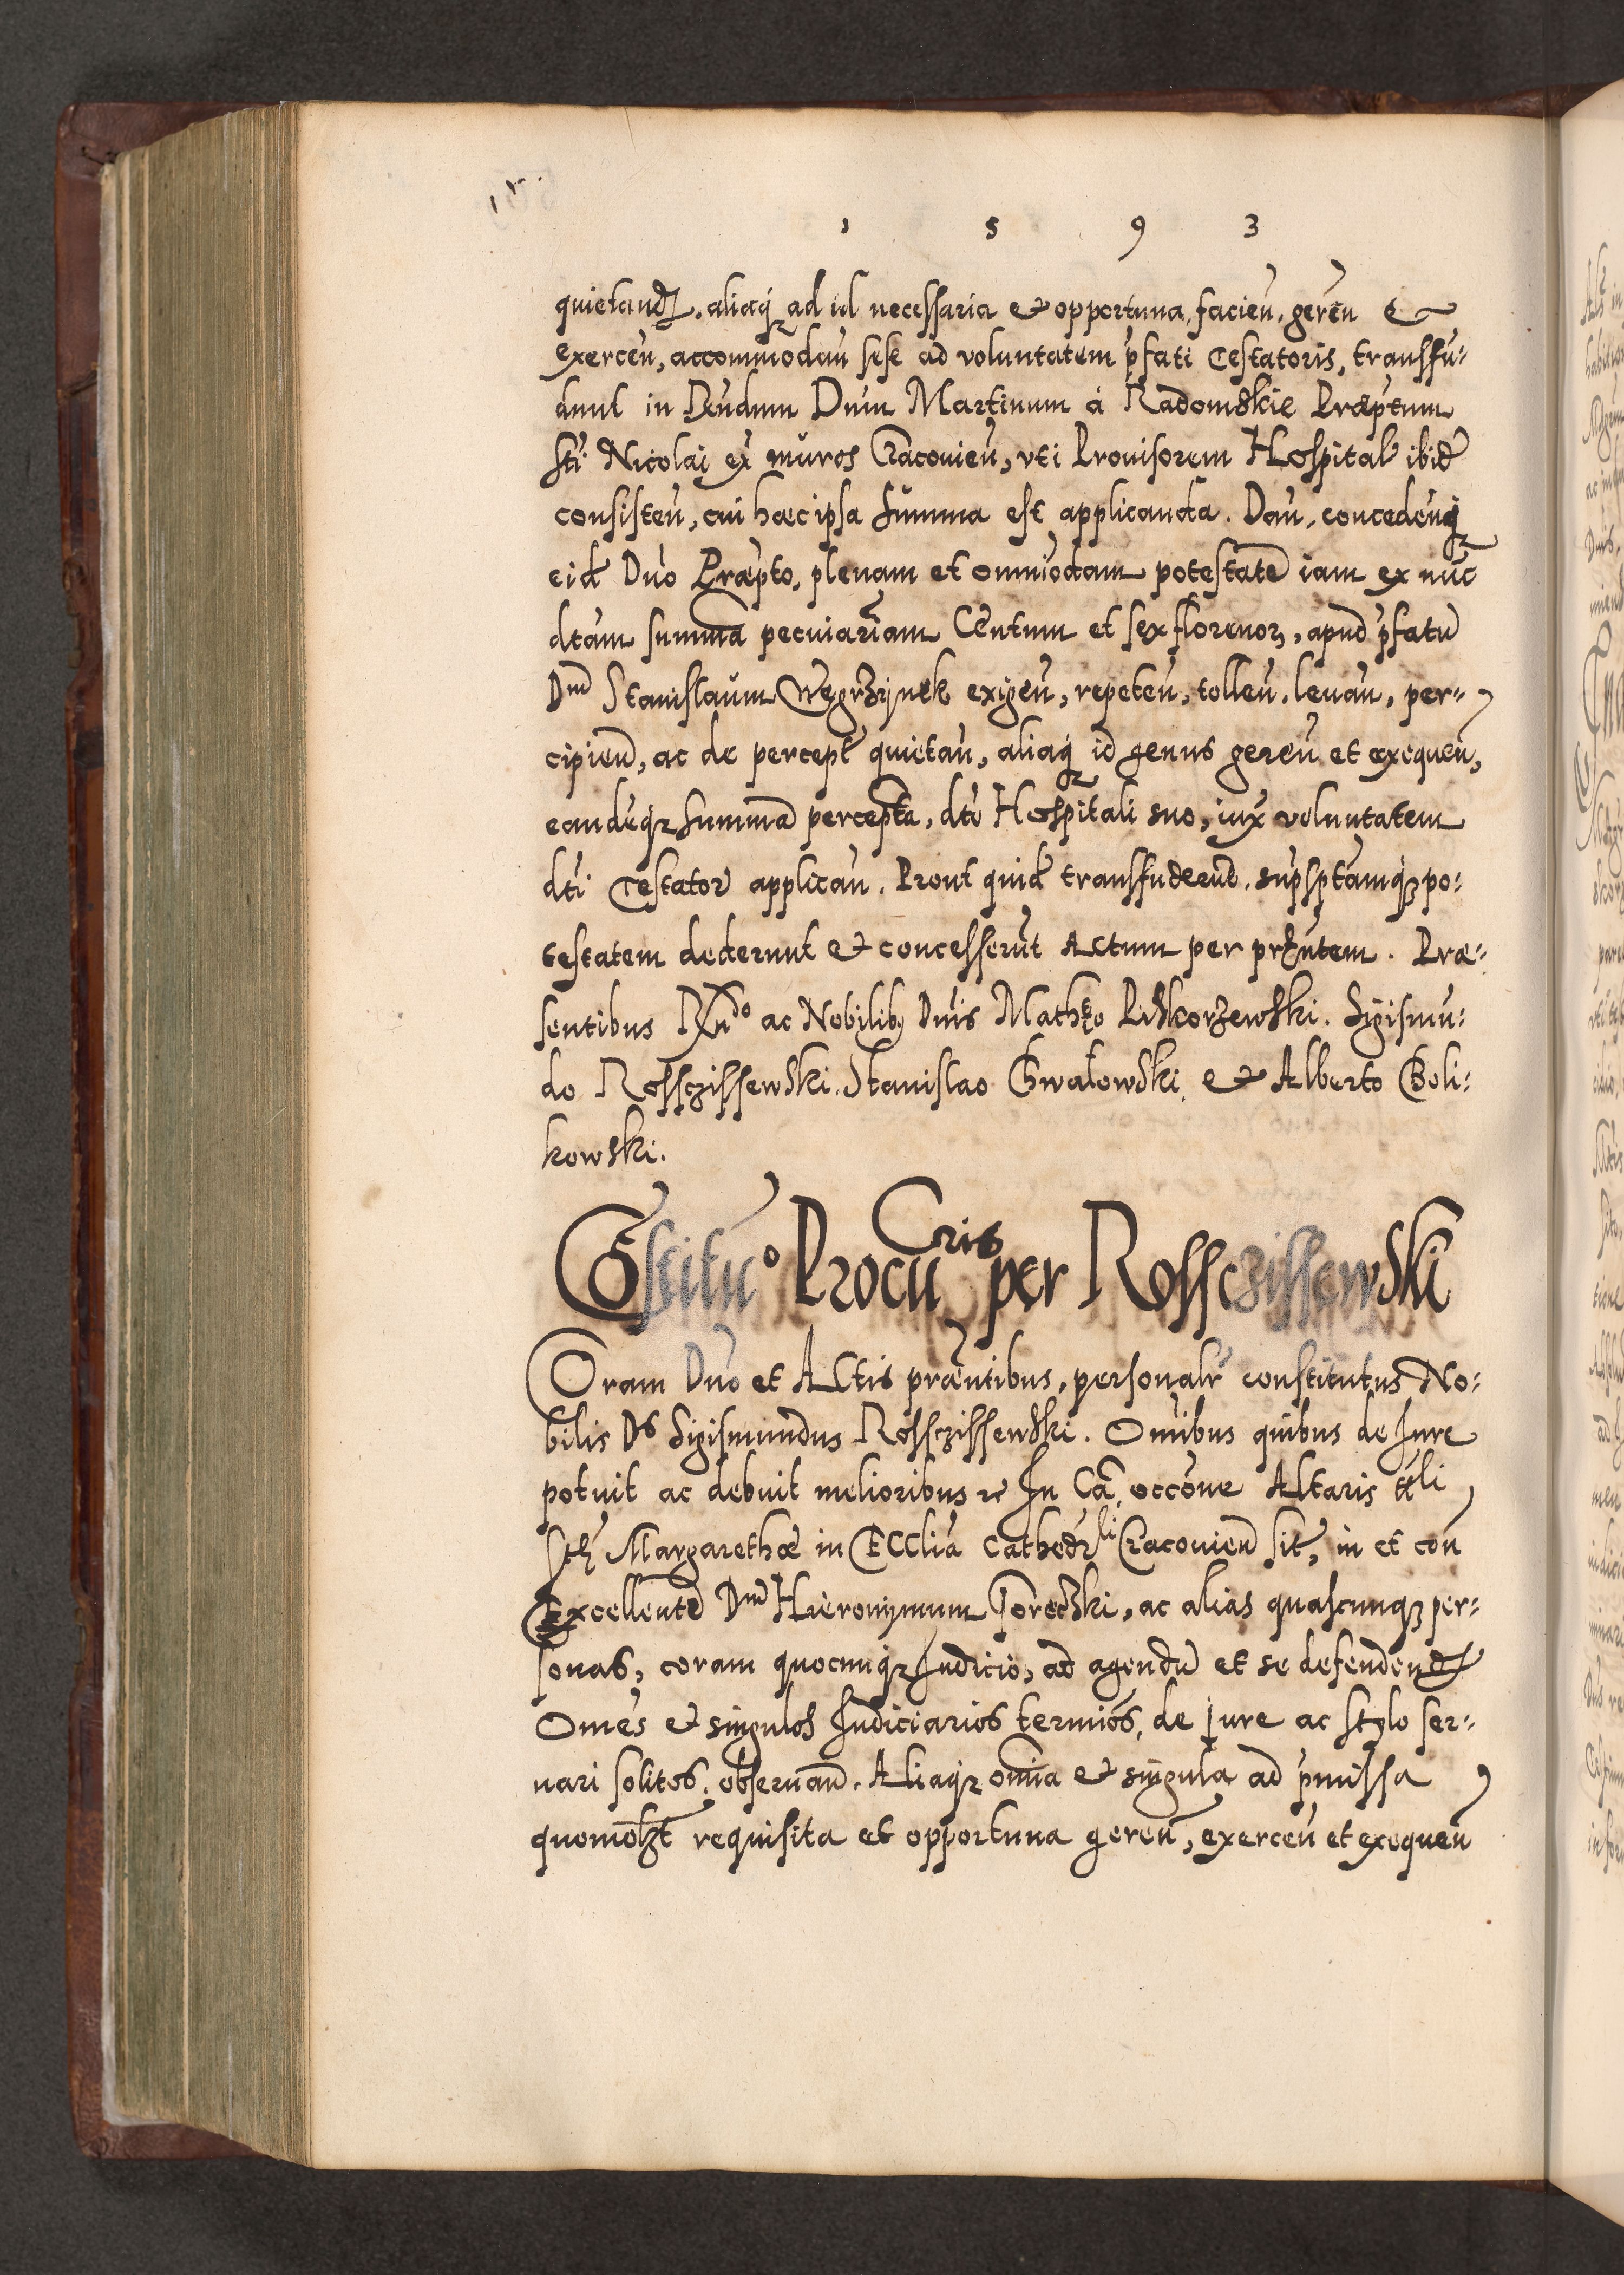 1 5 9 3
quietand. aliaq; ad id necessaria et opportuna, facien, geren et
exercen, accommodan sese ad voluntatem pfati Testatoris, transfu=
dunt in Rndum Dnm Martinum á Radomskie Præptum
sti Nicolai ex muros Cracovien, vti Prouisorem Hospital ibid
consisten, cui hæc ipsa summa est applicanda. Dan, concedenq;
eid Dno Præpto, plenam et omniodam potestate iam ex nuc
dtam summa pecuiariam Centum et sex florenor, apud pfatu
Dnm Stanislaum Węgrzijnek exigen, repeten, tollen, leuan, per=
cipien, ac de percept quietan, aliaq; id genus geren et exequen,
eandeq; summa percepta, dto Hospitali suo, iux voluntatem
dti Testator applican. Prout quid transfuderud. supsptamq; po=
testatem dederunt et concesserut Actum per prntem. Præ=
sentibus Rndo ac Nobilib Dnis Mathæo Piskorzewski. Sigismu=
do Rossczissewski. Stanislao Gwałowski, et Alberto Goli=
kowski.
Cstitu° Procu Cris per Rossczissewski
Coram Dno et Actis præntibus, personalr constitutus No=
bilis Ds Sigismundus Rossczissewski. Omibus quibus de Iure
potuit ac debuit melioribus rc In Ca occone Altaris ttli
Stæ Margarethæ in Ecclia Cathedrli Cracovien sit, in et con
Excellente Dnm Hieronymum Toreczki, ac alias quascunq; per=
sonas, coram quocunq; Iudicio, ad agendu et se defenden
Omes et singulos Iudiciarios termios, de Iure ac stylo ser=
uari solitos, obseruan. Aliaq; omia et singula ad pmissa
quomolzt requisita et opportuna geren, exercen et exequen